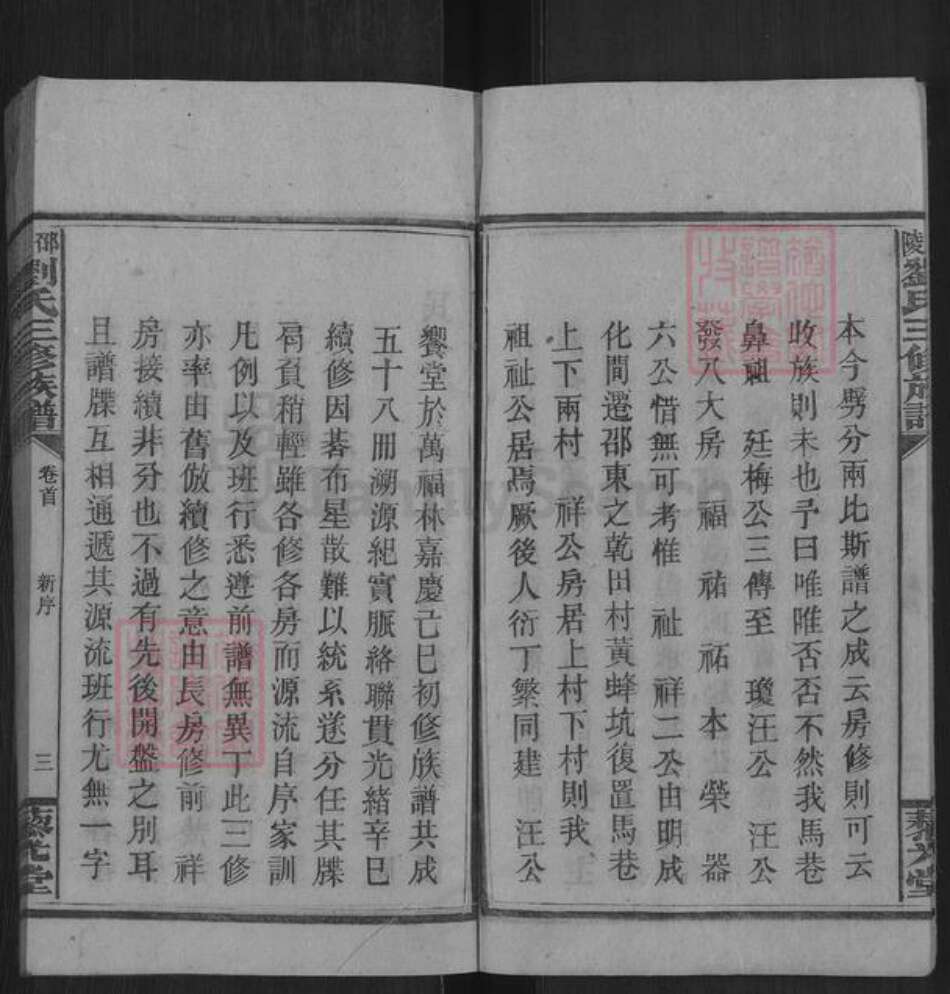 本今劈分兩比斯譜之成云房修則可云
收族則未也予曰唯唯否否不然我馬巷
鼻祖 廷梅公三傳至 瓊汪公 汪公
發八大房 福 祐 祏 本 榮 器
六公惜無可考惟 祉 祥二公由明成
化間遷邵東之乾田村黃蜂坑復置馬巷
上下兩村 祥公房居上村下村則我
祖祉公居焉厥後人衍丁繁同建 汪公
饗堂於萬福林嘉慶己巳初修族譜共成
五十八冊溯源紀實脈絡聯貫光緒辛巳
續修因碁布星散難以統系遂分任其牒
冊負稍輕雖各修各房而源流自序家訓
凡例以及班行悉遵前譜無異丁此三修
亦率由舊倣續修之意由長房修前 祥
房接續非分也不過有先後開盤之別耳
且譜牒互相通遞其源流班行尤無一字
邵
劉氏三修族譜
卷首
新序
三
陵
FamilySearch